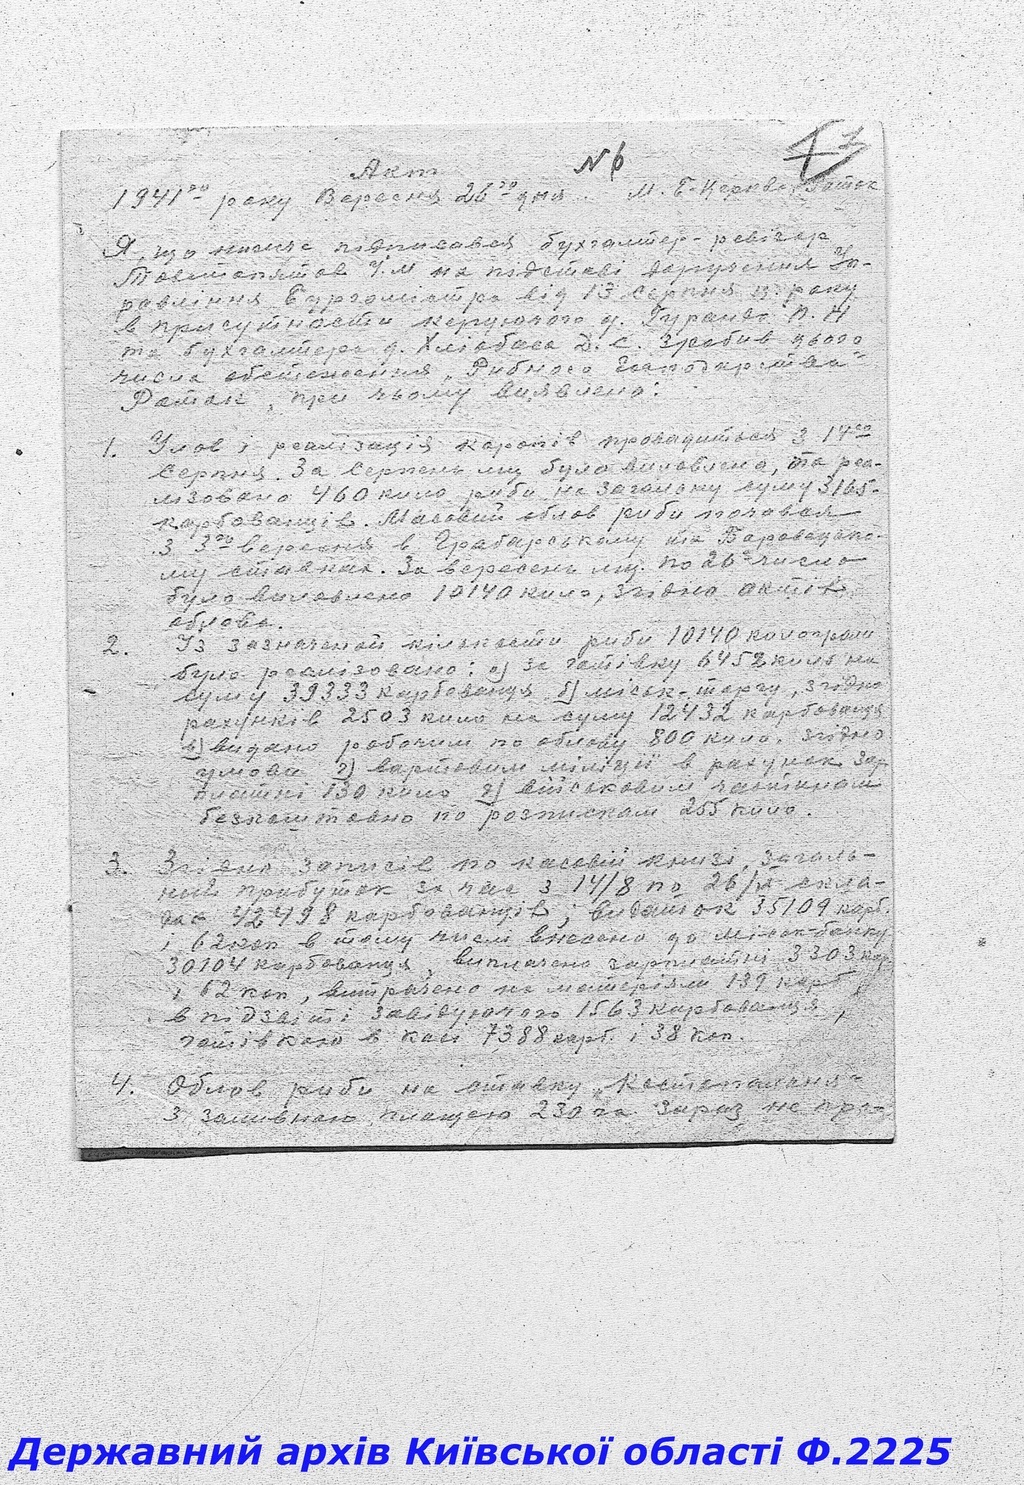 № 6
Акт
1941го року Вересня 26го дня м. Б-Церква Роток
Я, що нижче підписався бухгалтер-ревізор
на підставі доручення Уп-
равління Бургомістра від 13 Серпня ц. року
в присутности керуючого д. П. Н
та бухгалтера д. Д. С. зробив цього
числа обстеження „Рибного Господарства"
Роток, при чьому виявлено:
1. Улов і реалізація коропів провадиться з 14го
Серпня. За Серпень м-ц було виловлено, та реа-
лізовано 460 кило риби на загальну суму 3165-
карбованців. Масовий облов риби почався
з 3го вересня в Грабарському та
му ставках. За вересень м-ц по 26е число
було виловлено 10140 кило, згідно актів
облова.
2. Із зазначеной кількости риби 10140 кілограм
було реалізовано: а) за готівку 6452 кило на
суму 39333 карбованця б) міськ-торгу, згідно
рахунків 2503 кило на суму 12432 карбованця
в) видано робочим по облову 800 кило. згідно
умови г) вартовим міліції в рахунок зар
платні 130 кило д) військовим частинам
безкоштовно по розпискам 255 кило.
3. Згідно записів по касовій книзі, загаль-
ний прибуток за час з 14/8 по 26/ІХ скла-
дає 42498 карбованців; видаток 35109 карб.
і 62 коп в тому числі внесено до міськ-банку
30104 карбованця, виплачено зарплатні 3303 кар
і 62 коп, витрачено на матеріяли 139 карб
в підзвіті завідуючого 1563 карбованця,
готівкою в касі 7388 карб. і 38 коп.
4. Облов риби на ставку
з заливною площею 230 га зараз не про-
Державний архів Київської області Ф.2225